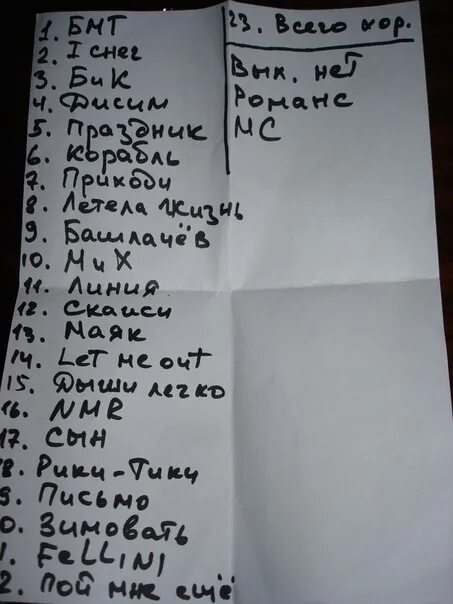 1. БМТ
2. I снег
3. БиК
4. Фисим
5. Праздник
6. Корабль
7. Приходи
8. Летела жизнь
9. Башлачёв
10. МиХ
11. Линия
12. Скаиси
13. Маяк
14. Let me out
15. Дыши легко
16. NMR
17. Сын
8. Рики-Тики
9. Письмо
0. Зимовать
1. FeLLINI
2. Пой мне ещё
23. Всего хор.
Вых. нет
Романс
МС